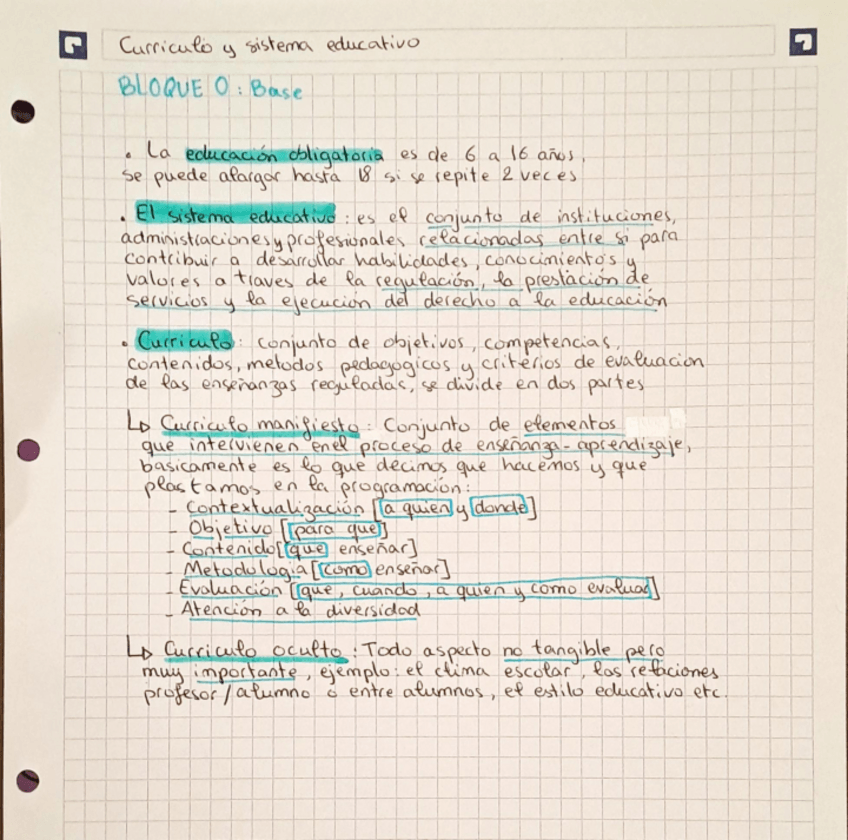 Curriculo y sistema educativo
BLOQUE 0 : Base
. La educación obligatoria es de 6 a 16 años,
se puede alargar hasta 18 si se repite 2 veces
. El sistema educativo : es el conjunto de instituciones,
administraciones y profesionales relacionadas entre si para
contribuir a desarrollar habilidades, conocimientos y
valores a traves de la regulación, la prestación de
servicios y la ejecución del derecho a la educación
. Curriculo : conjunto de objetivos, competencias,
contenidos, metodos pedagogicos y criterios de evaluacion
de las enseñanzas reguladas, se divide en dos partes
↳ Curriculo manifiesto : Conjunto de elementos
que intervienen en el proceso de enseñanza - aprendizaje,
basicamente es lo que decimos que hacemos y que
plastamos en la programación:
- Contextualización [a quien y donde]
- Objetivo [para que]
- Contenido [que enseñar]
- Metodologia [como enseñar]
- Evaluación [que, cuando, a quien y como evaluar]
- Atención a la diversidad
↳ Curriculo oculto : Todo aspecto no tangible pero
muy importante, ejemplo: el clima escolar, las relaciones
profesor / alumno o entre alumnos, el estilo educativo etc.